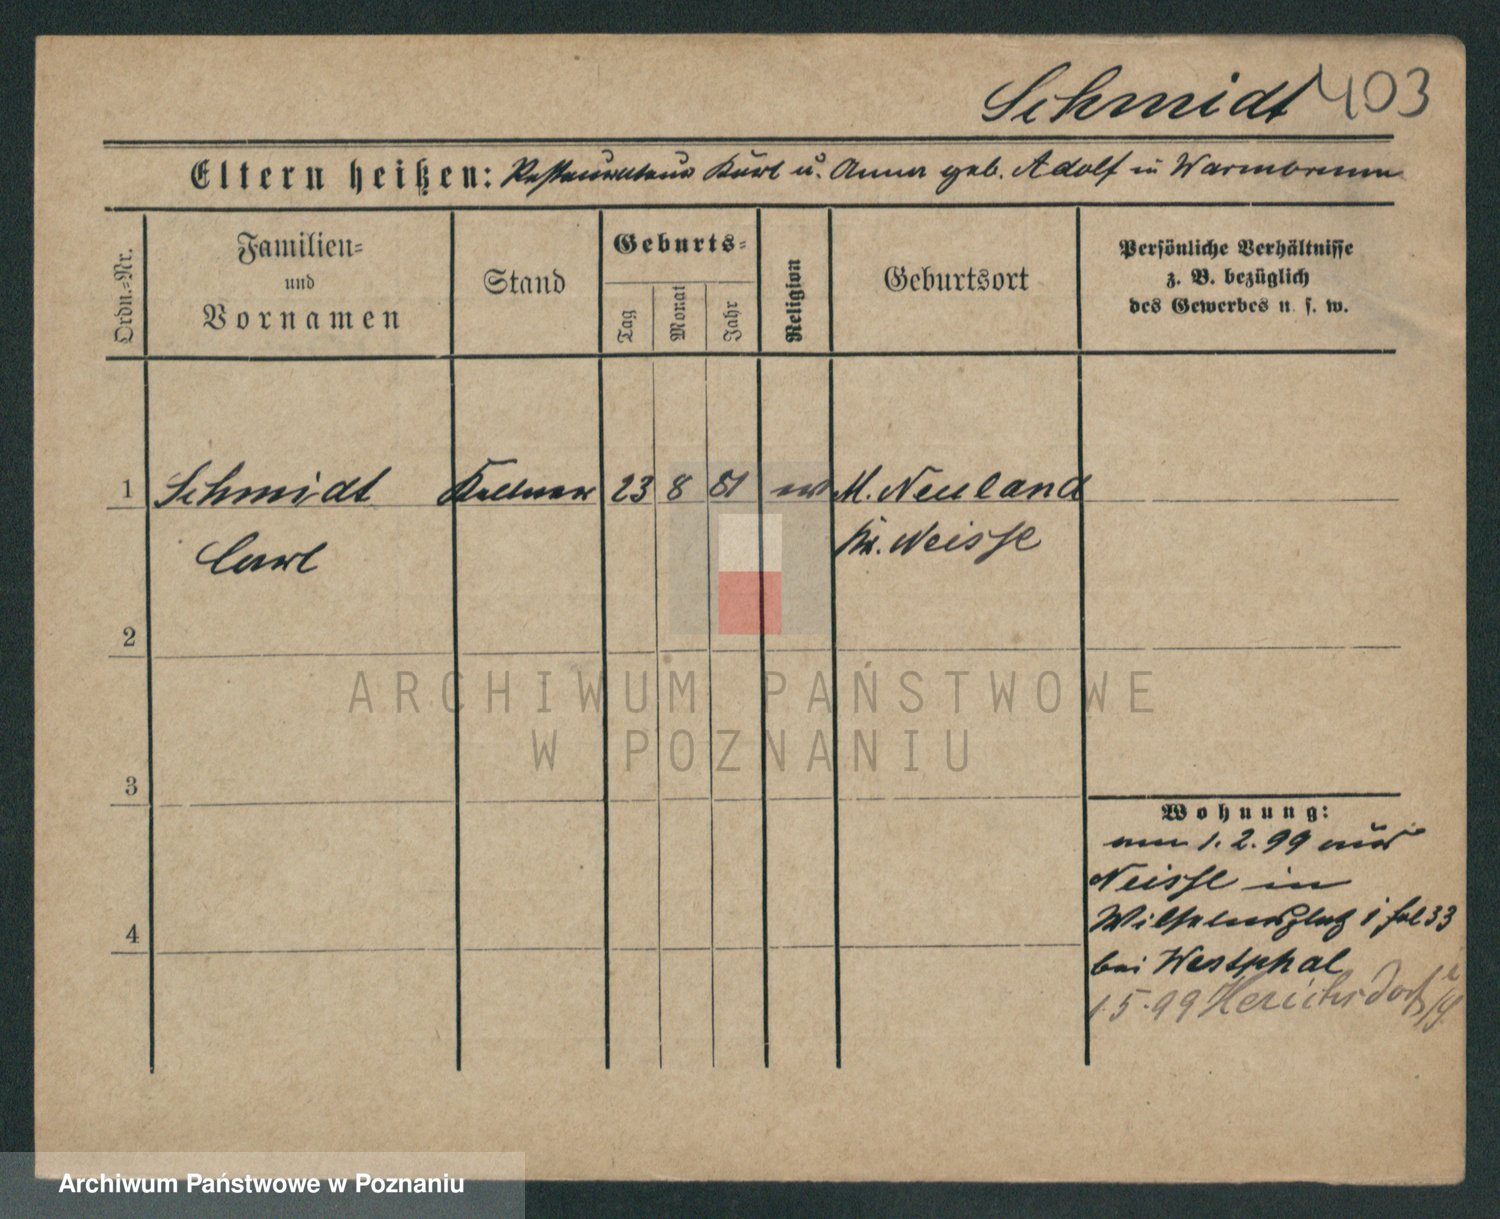 Schmidt 403
Eltern heißen: Restaurateur Karl u. Anna geb. Adolf in Warmbrunn
Ordn.-Nr.
Familien-
und
Vornamen
Stand
Geburts-
Tag
Monat
Jahr
Religion
Geburtsort
Persönliche Verhältnisse
z. B. bezüglich
des Gewerbes u. s. w.
1 Schmidt Kellner 23 8 81 ev M. Neuland
Carl Kr. Neisse
2
3
4
Wohnung:
am 1. 2. 99 aus
Neisse in
Wilhelmsplatz 33
bei Westphal
1.5.99
ARCHIWUM PAŃSTWOWE
W POZNANIU
Archiwum Państwowe w Poznaniu